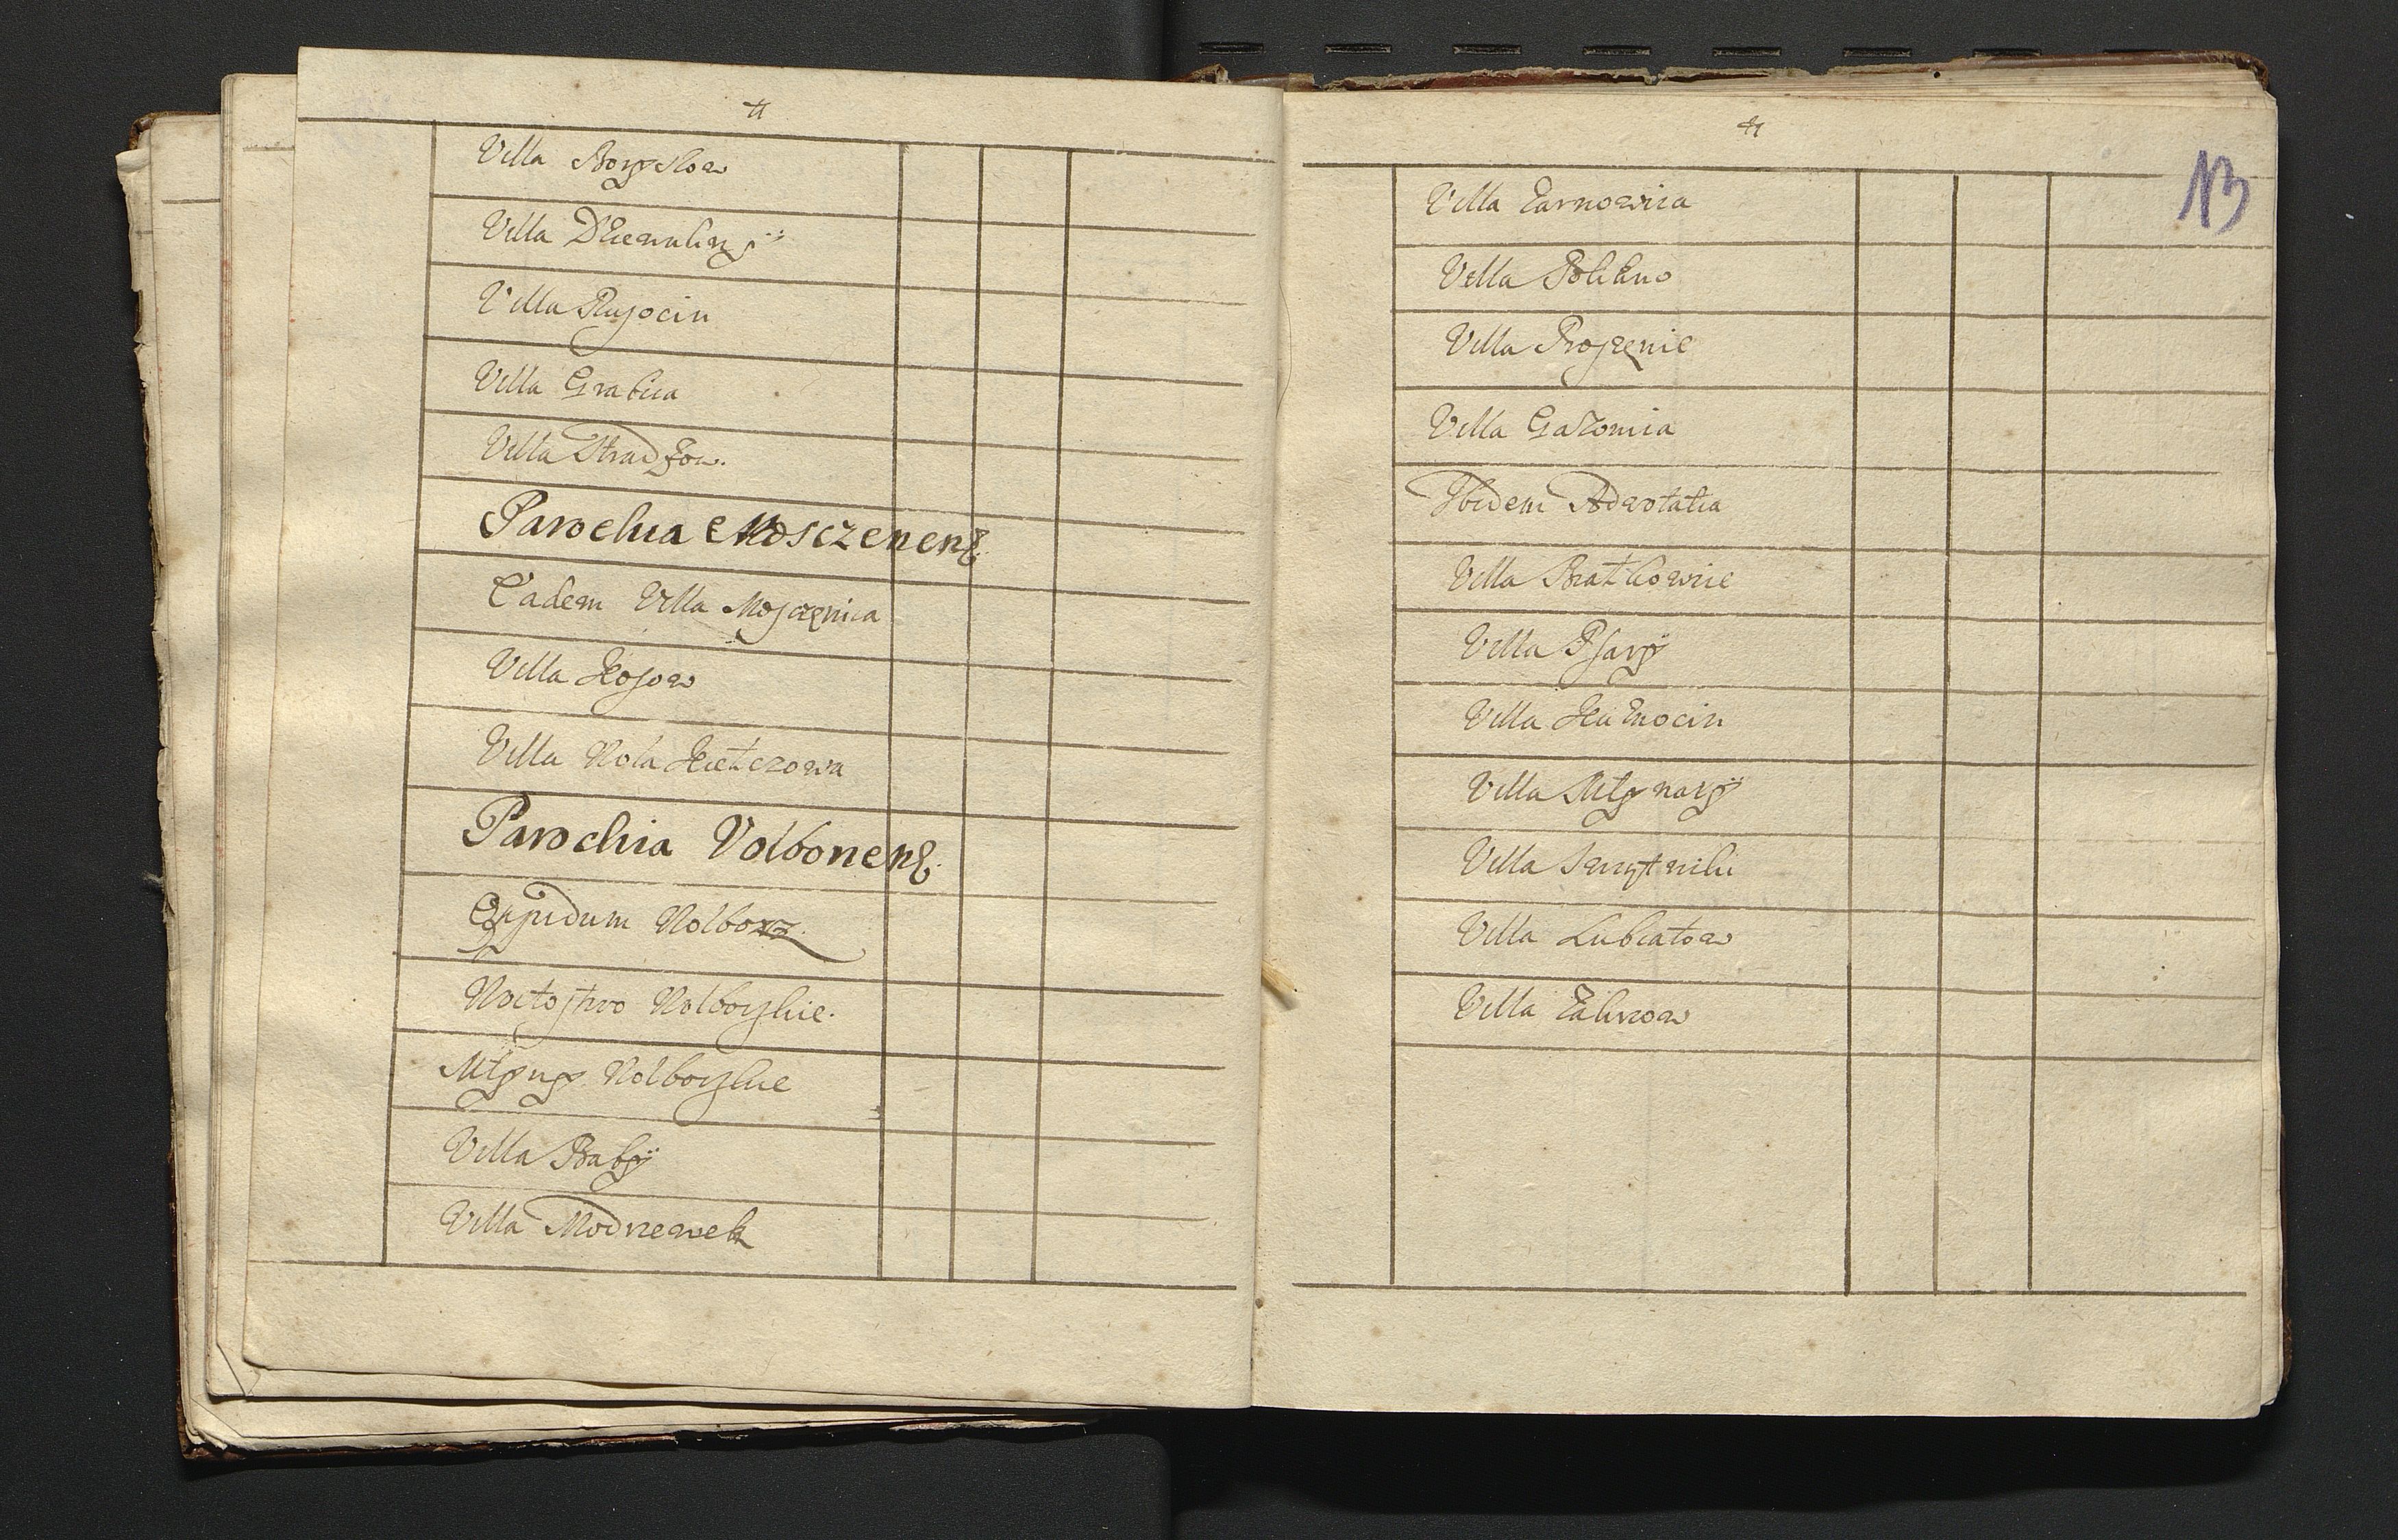 Villa Boryslow
Villa Dziewulinÿ
Villa Rusocin
Villa Grabica
Villa Stradzow.
Parochia Mosczenens.
Eadem Villa Mosczenica
Villa Kosow
Villa Wola Kutczowa
Parochia Volborien̄s.
Oppidum Wolborz.
Woitostwo Wolborskie.
Młyny Wolborskie
Villa Babÿ
Villa Modrzewek
13
Villa Zarnowica
Villa Polichno
Villa Proszenie
Villa Gazomia
Ibidem Advotalia
Villa Bratkowice
Villa Psarÿ
Villa Kuznocin
Villa Młynarÿ
Villa Swrytniki
Villa Lubiatow
Villa Zalesow